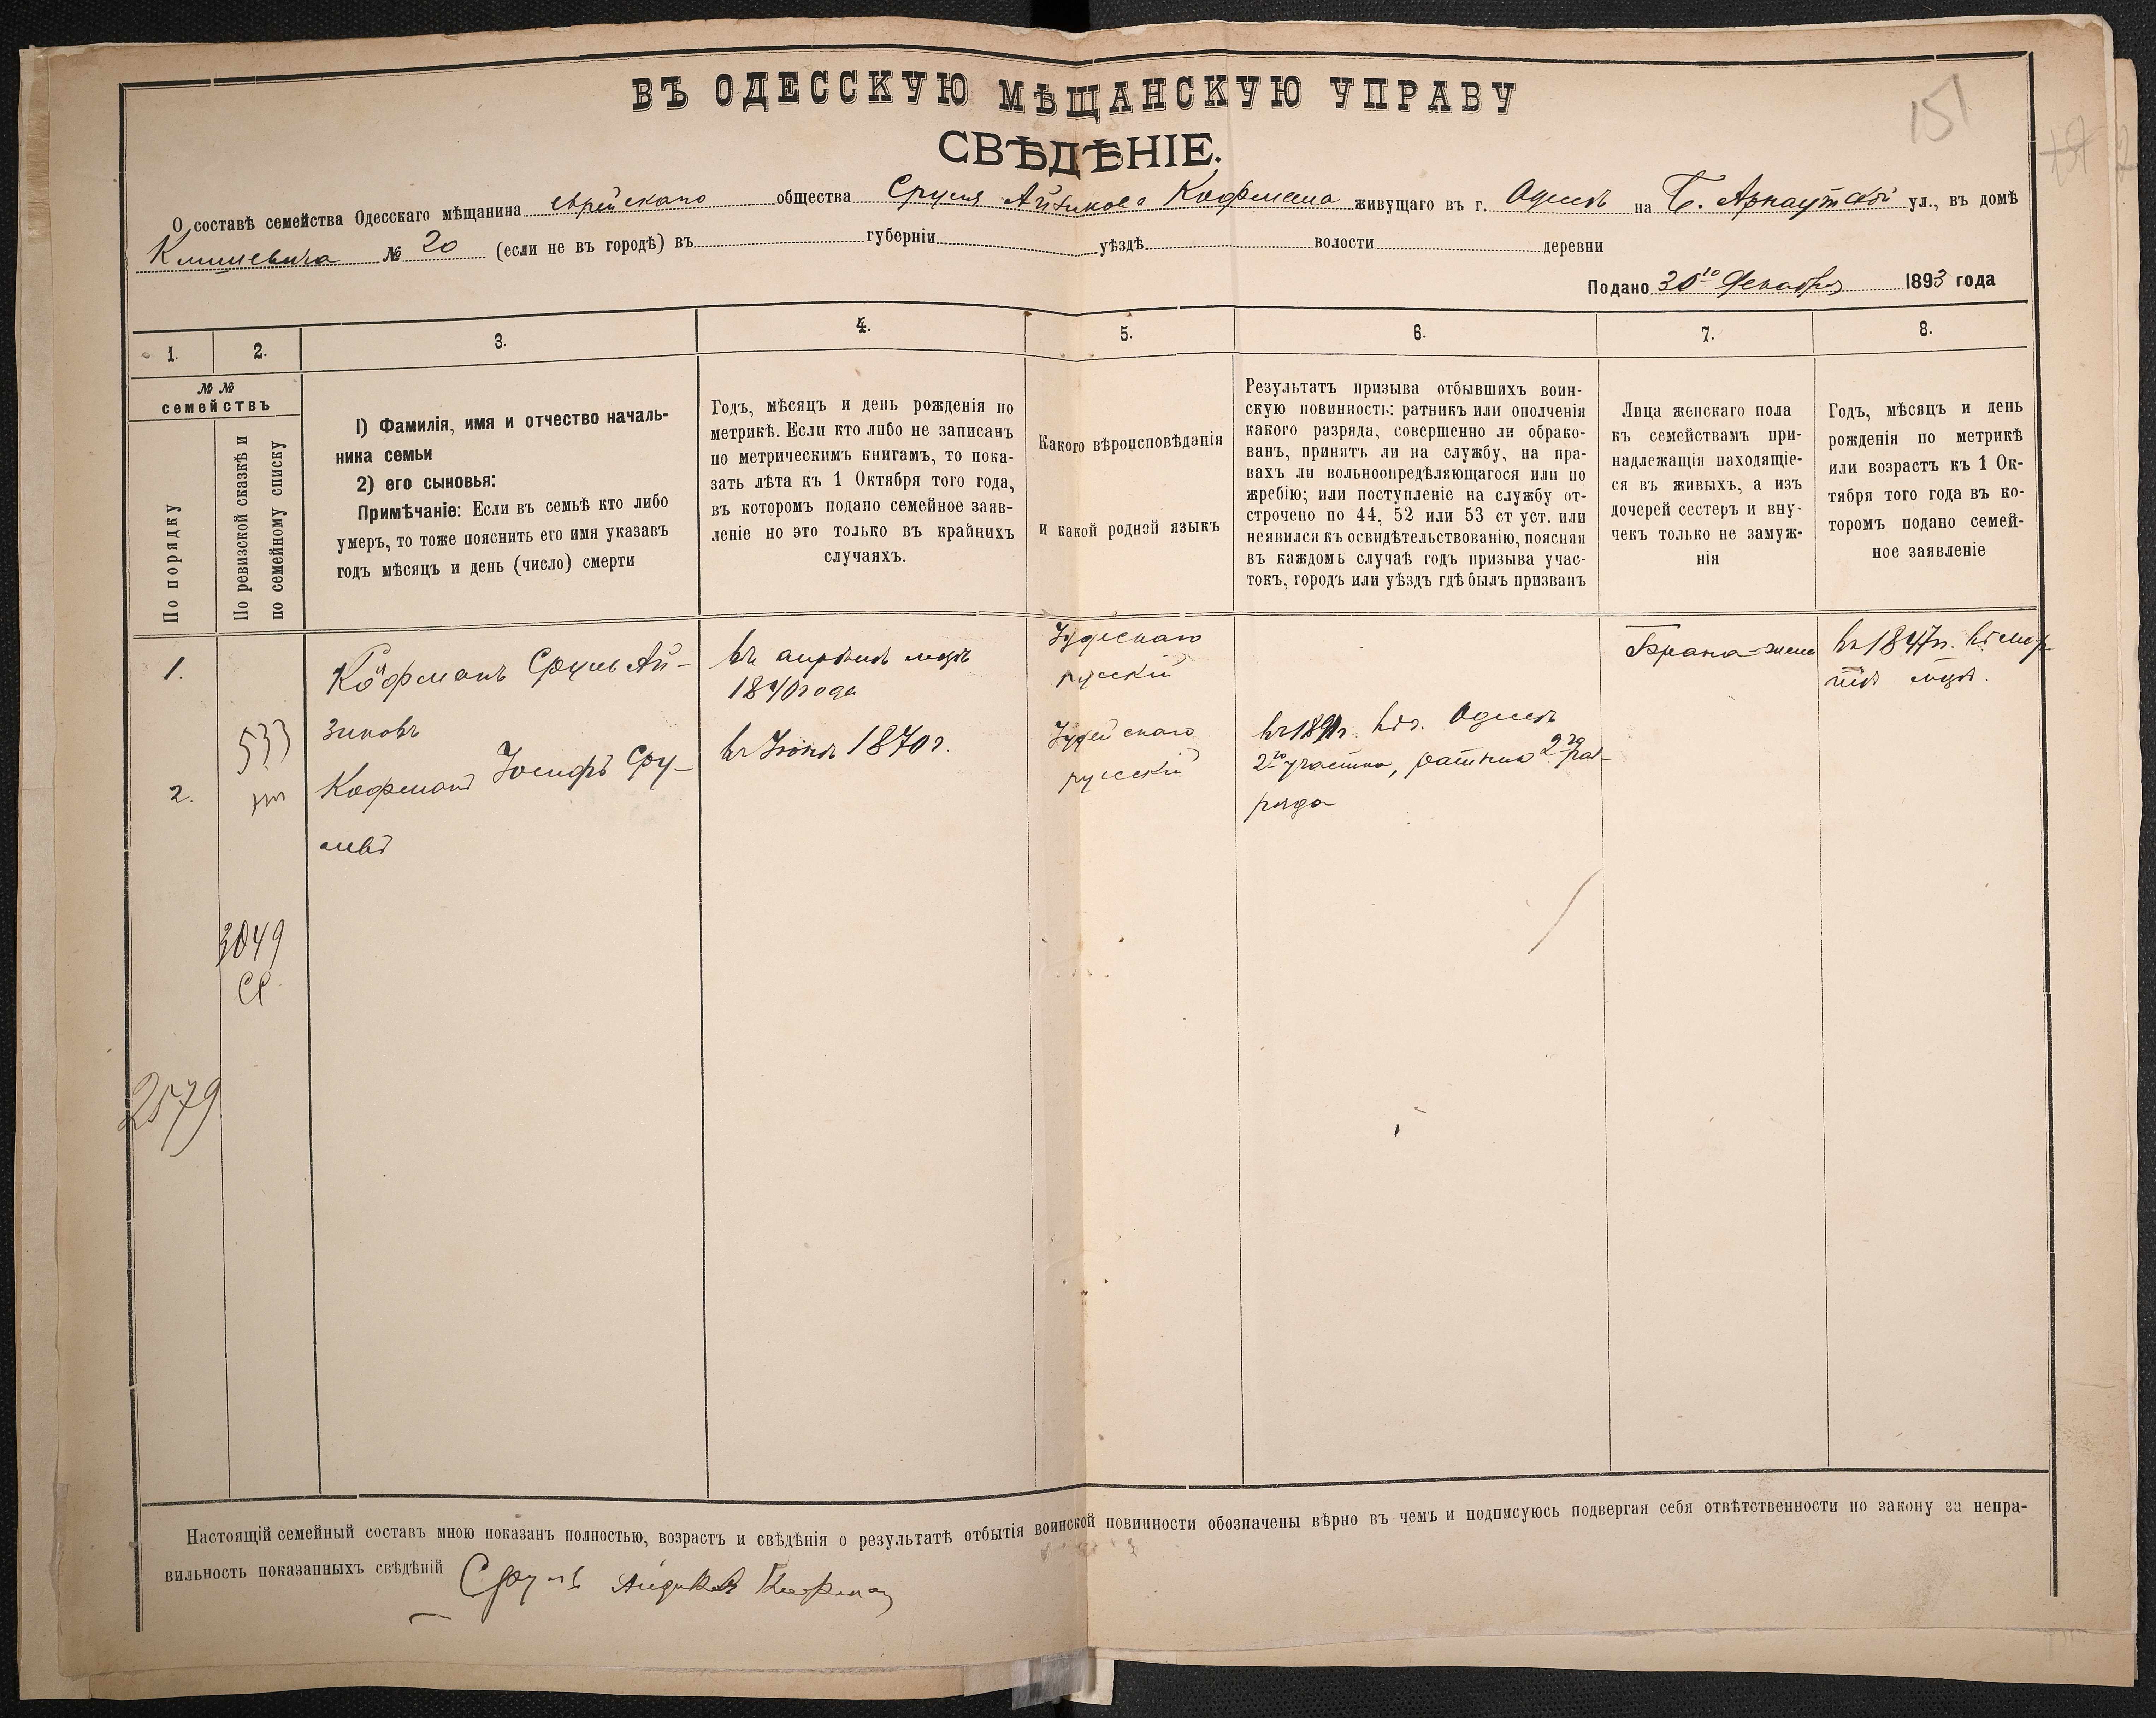 ВЪ ОДЕССКУЮ МѢЩАНСКУЮ УПРАВУ
151
СВѢДѢНІЕ.
О составѣ семейства Одесскаго мѣщанина еврейскаго общества Сруля Айзикова Кофмана живущаго въ г. Одессѣ на Б. Арнаутской ул., въ домѣ
№ 20 (если не въ городѣ) въ губерніи уѣздѣ волости деревни
Подано 30го Декабря 1893 года
1. 2. 3. 4. 5. 6. 7. 8.
№ №
семействъ
По порядку
По ревизской сказкѣ и
по семейному списку
1) Фамилія, имя и отчество началь-
ника семьи
2) его сыновья:
Примѣчаніе: Если въ семьѣ кто либо
умеръ, то тоже пояснить его имя указавъ
годъ мѣсяцъ и день (число) смерти
Годъ, мѣсяцъ и день рожденія по
метрикѣ. Если кто либо не записанъ
по метрическимъ книгамъ, то пока-
зать лѣта къ 1 Октября того года,
въ которомъ подано семейное заяв-
леніе но это только въ крайнихъ
случаяхъ.
Какого вѣроисповѣданія
и какой родной языкъ
Результатъ призыва отбывшихъ воин-
скую повинность: ратникъ или ополченія
какого разряда, совершенно ли обрако-
ванъ, принятъ ли на службу, на пра-
вахъ ли вольноопредѣляющагося или по
жребію; или поступленіе на службу от-
строчено по 44, 52 или 53 ст уст. или
неявился къ освидѣтельствованію, поясняя
въ каждомъ случаѣ годъ призыва учас-
токъ, городъ или уѣздъ гдѣ былъ призванъ
Лица женскаго пола
къ семействамъ при-
надлежащія находящіе-
ся въ живыхъ, а изъ
дочерей сестеръ и вну-
чекъ только не замуж-
нія
Годъ, мѣсяцъ и день
рожденія по метрикѣ
или возрастъ къ 1 Ок-
тября того года въ ко-
торомъ подано семей-
ное заявленіе
1.
Кофманъ Сруль Ай-
зиковъ
въ апрѣлѣ мцѣ
1840 года
Іудейскаго
русскій
жена
въ 1847 г. въ мар-
тѣ мцѣ.
533
2.
Кофманъ Іосифъ Сру-
левъ
въ Іюнѣ 1870 г.
Іудейскаго
русскій
въ 1891 г. въ г. Одессѣ
2го участка, ратникъ 2го раз-
ряда
3049
2579
Настоящій семейный составъ мною показанъ полностью, возрастъ и свѣдѣнія о результатѣ отбытія воинской повинности обозначены вѣрно въ чемъ и подписуюсь подвергая себя отвѣтственности по закону за непра-
вильность показанныхъ свѣдѣній Сруль Кофман